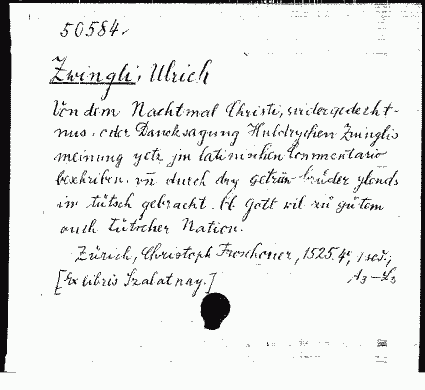 50584.
Zwingli, Ulrich
Von dem Nachtmal Christi, widergedecht-
nus. oder Dancksagung Huldrychen Zwinglis
meinung yetz jm latinischen Commentario
beschriben. vñ durch dry getrüw brüder ylends
in tütsch gebracht. Ob Gott wil zu gutem
ouch tütscher Nation.
Zürich, Christoph Froschouer, 1525. 4°,
[Ex libris Szalatnay.] A3-L3